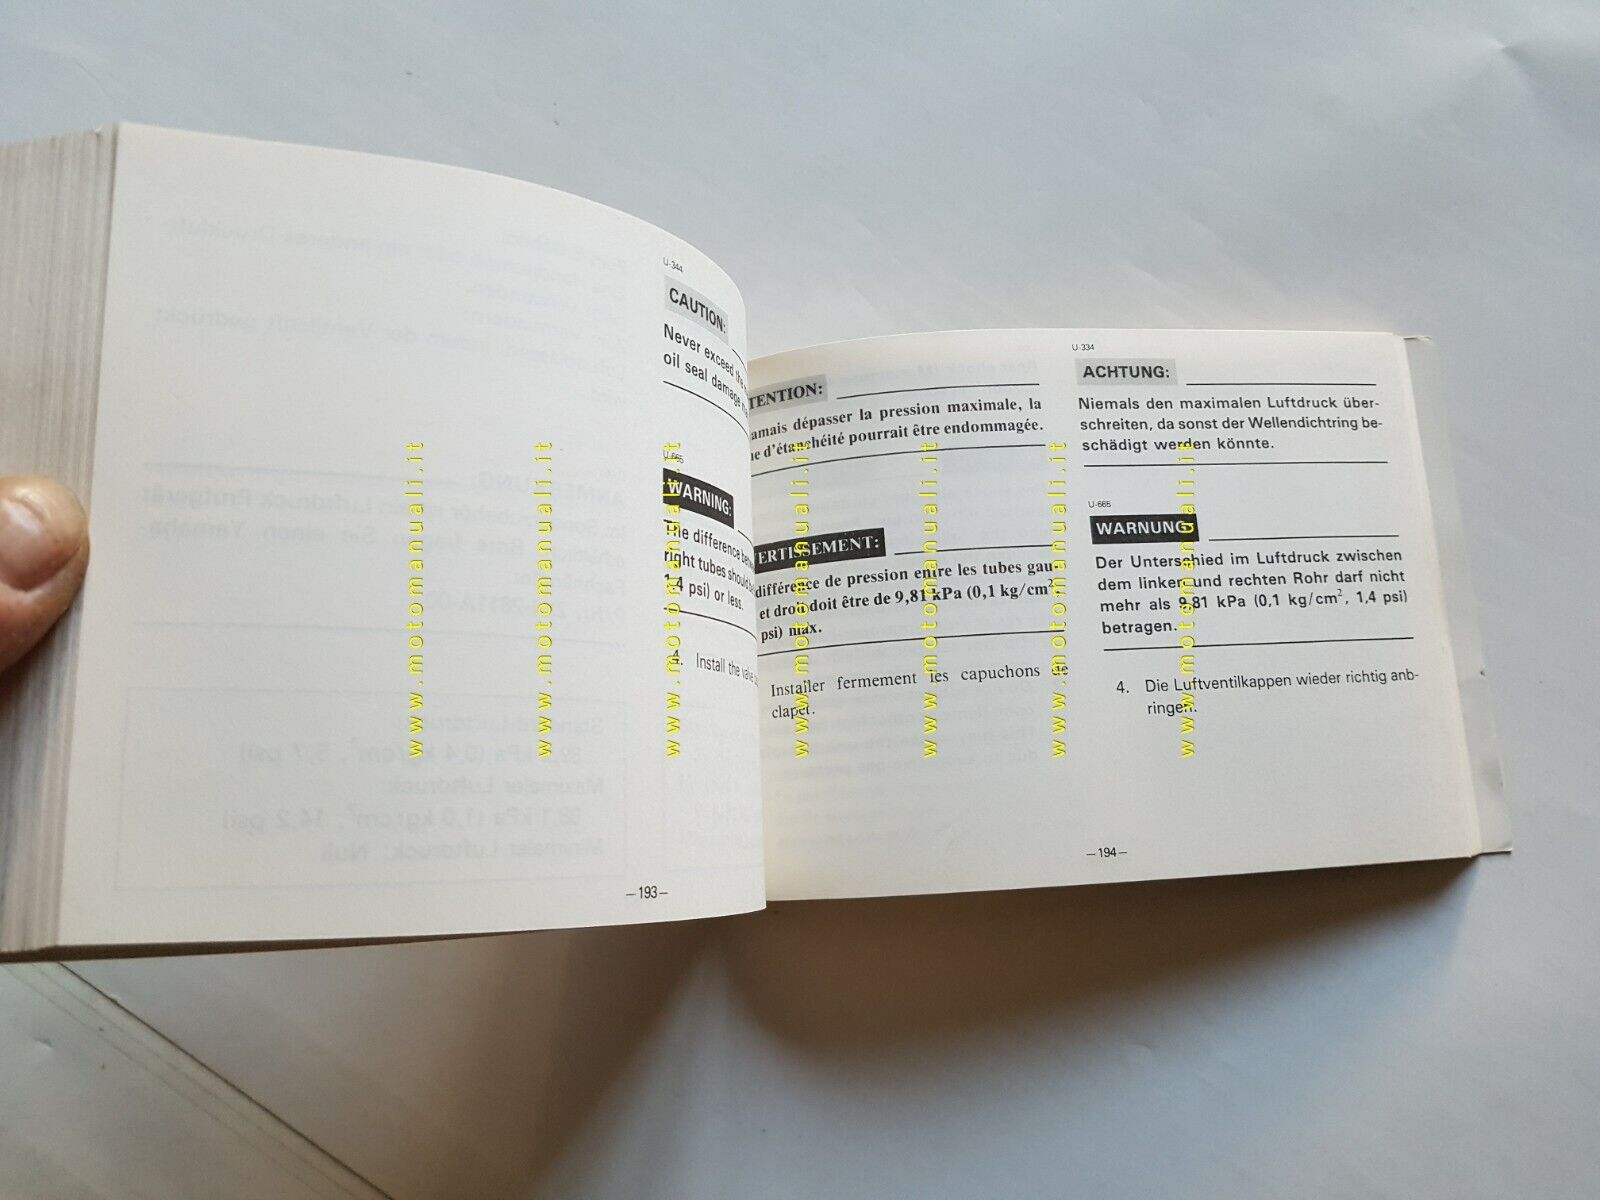 U-344
CAUTION:
Never exceed the
oil seal damage
U-665
WARNING:
The difference
right tubes should
1,4 psi) or less.
4. Install the valve
—193—
TENTION:
amais dépasser la pression maximale, la
e d'étanchéité pourrait être endommagée.
ERTISSEMENT:
différence de pression entre les tubes gau-
et droit doit être de 9,81 kPa (0,1 kg/cm²,
psi) max.
Installer fermement les capuchons de
clapet.
U-334
ACHTUNG:
Niemals den maximalen Luftdruck über-
schreiten, da sonst der Wellendichtring be-
schädigt werden könnte.
U-665
WARNUNG
Der Unterschied im Luftdruck zwischen
dem linken und rechten Rohr darf nicht
mehr als 9,81 kPa (0,1 kg/cm², 1,4 psi)
betragen.
4. Die Luftventilkappen wieder richtig anb-
ringen.
—194—
www.motomanuali.it
www.motomanuali.it
www.motomanuali.it
www.motomanuali.it
www.motomanuali.it
www.motomanuali.it
www.motomanuali.it